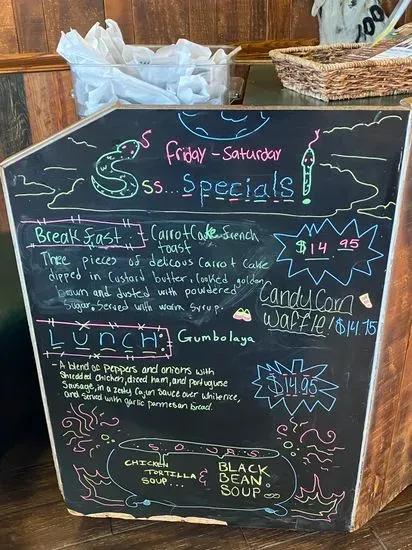 Friday - Saturday
Sss... Specials!
Breakfast - Carrot Cake French
toast
Three pieces of delicous Carrot Cake
dipped in Custard butter, Cooked golden
brawn and dusted with powdered
Sugar, Served with warm Syrup.
$14.95
Candy Corn
Waffle! $14.75
LUNCH: Gumbolaya
- A blend of Peppers and onions with
shredded chicken, diced ham, and portuguese
Sausage, in a zesty Cajun Sauce over white rice,
and served with garlic parmesan bread.
$14.95
S.O.U.P.S
CHICKEN
TORTILLA
SOUP...
&
BLACK
BEAN
SOUP.